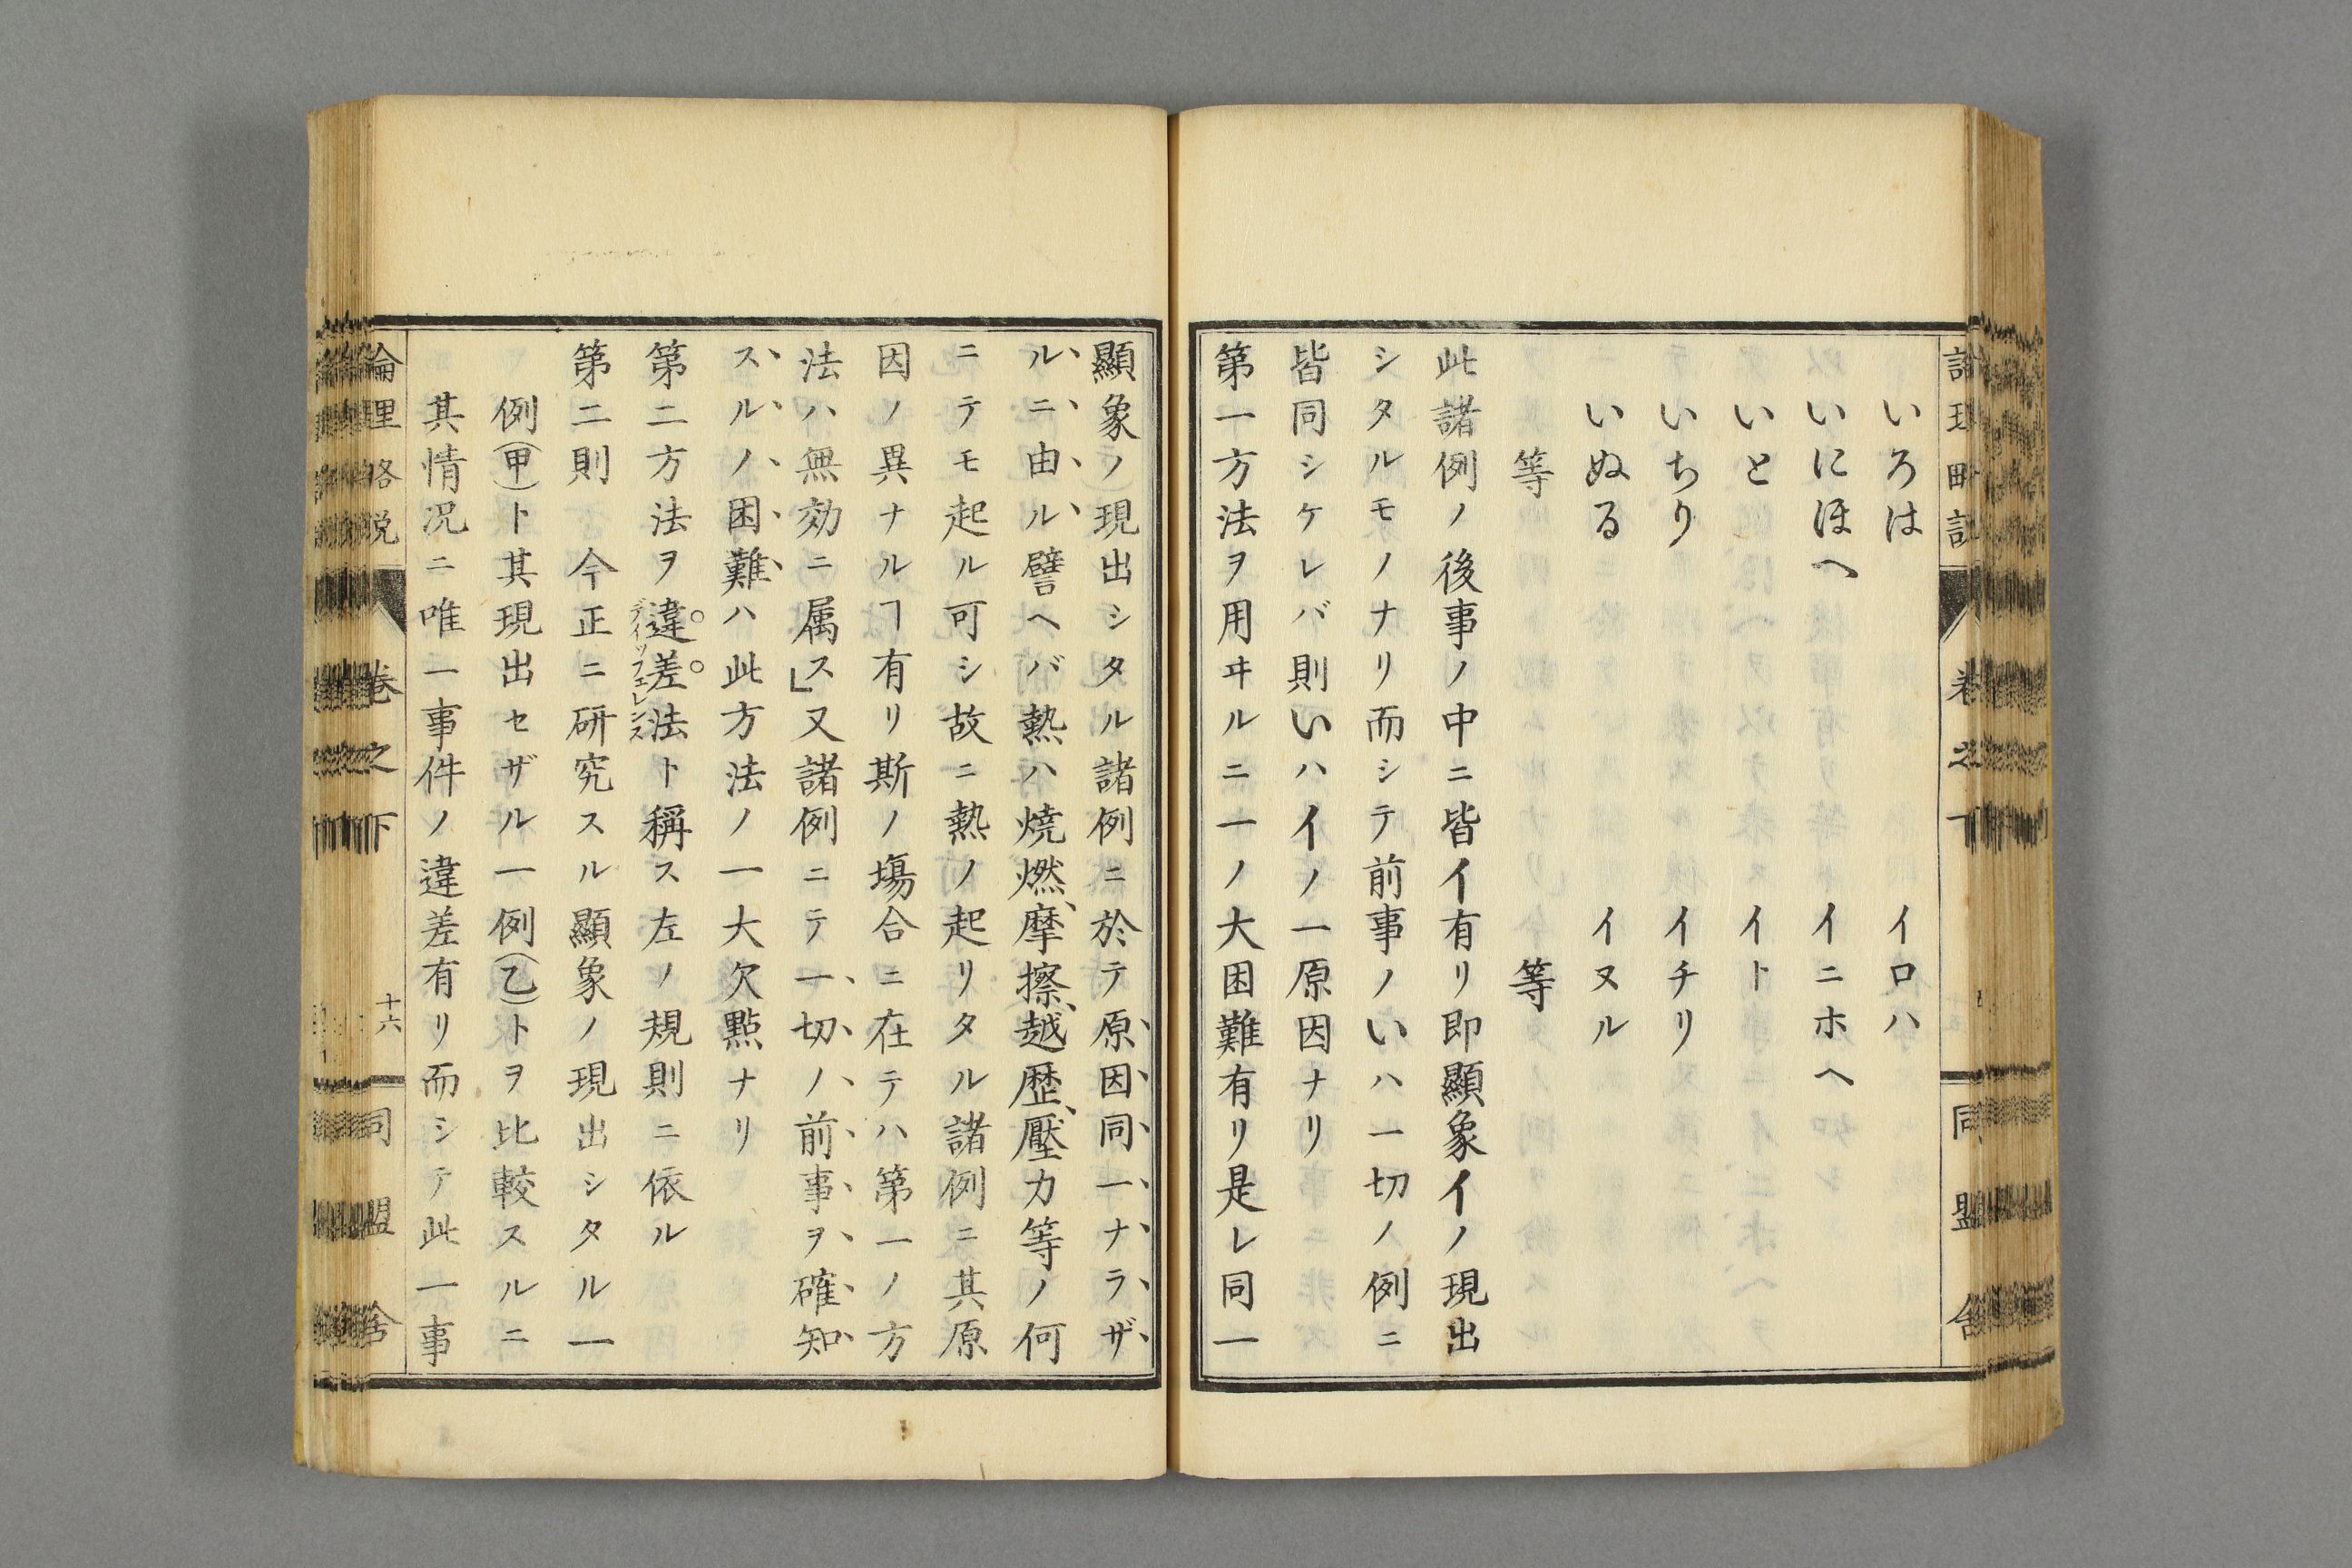 いろは　イロハ
いにほへ　イニホヘ
いと　イト
いちり　イチリ
いぬる　イヌル
等　等
此諸例ノ後事ノ中ニ皆イ有リ即顯象イノ現出
シタルモノナリ而シテ前事ノいハ一切ノ例ニ
皆同シケレバ則いハイノ一原因ナリ
第一方法ヲ用ヰルニ一ノ大困難有リ是レ同一
顯象ノ現出シタル諸例ニ於テ原因同一ナラザ
ルニ由ル譬ヘバ熱ハ燒燃、摩擦、越歴、壓力等ノ何
ニテモ起ル可シ故ニ熱ノ起リタル諸例ニ其原
因ノ異ナルヿ有リ斯ノ塲合ニ在テハ第一ノ方
法ハ無効ニ属ス」又諸例ニテ一切ノ前事ヲ確知
スルノ困難ハ此方法ノ一大欠點ナリ
第二方法ヲ違差法ト稱ス左ノ規則ニ依ル
ディッフェレンス
第二則　今正ニ研究スル顯象ノ現出シタル一
例(甲)ト其現出セザル一例(乙)トヲ比較スルニ
其情况ニ唯一事件ノ違差有リ而シテ此一事
論理略説　卷之下　十六　同盟舍